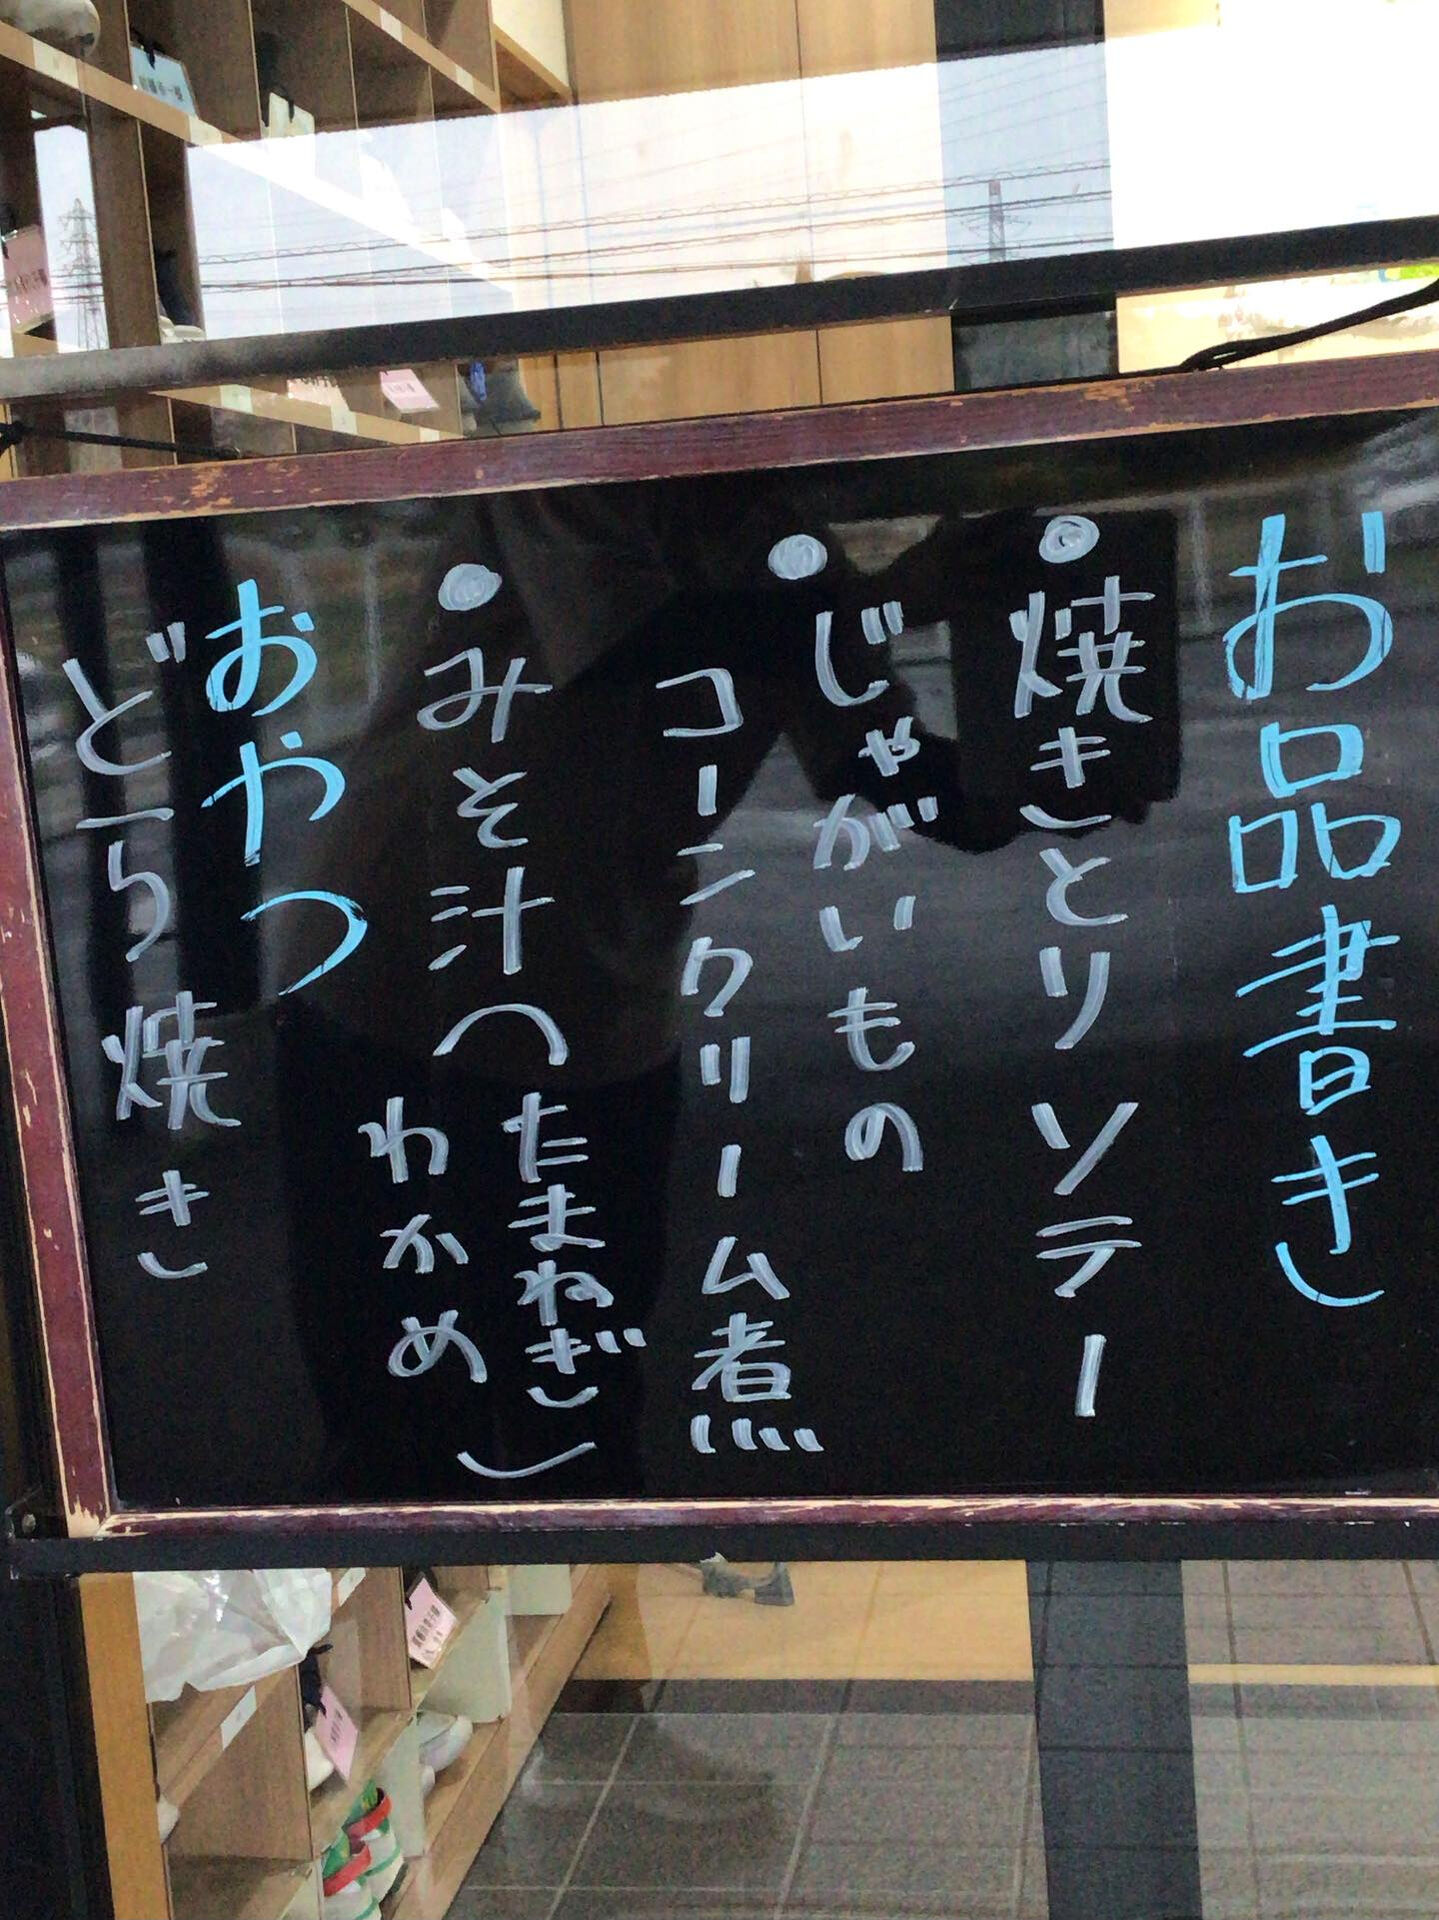 お品書き
焼きとりソテー
じゃがいもの
コーンクリーム煮
みそ汁(たまねぎ
わかめ)
おやつ
どら焼き